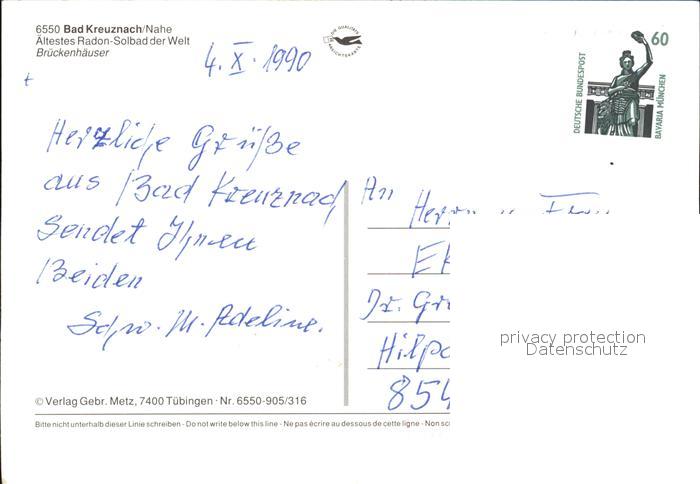 6550 Bad Kreuznach/Nahe
Ältestes Radon-Solbad der Welt
Brückenhäuser
4. X. 1990
60
DEUTSCHE BUNDESPOST
BAVARIA MÜNCHEN
Herzliche Grüße
aus Bad Kreuznach
sendet Ihnen
Beiden
Schw. M. Adeline.
An
Dr. Gr
Hilpo
854
privacy protection
Datenschutz
© Verlag Gebr. Metz, 7400 Tübingen · Nr. 6550-905/316
Bitte nicht unterhalb dieser Linie schreiben - Do not write below this line - Ne pas écrire au dessous de cette ligne - Non sc